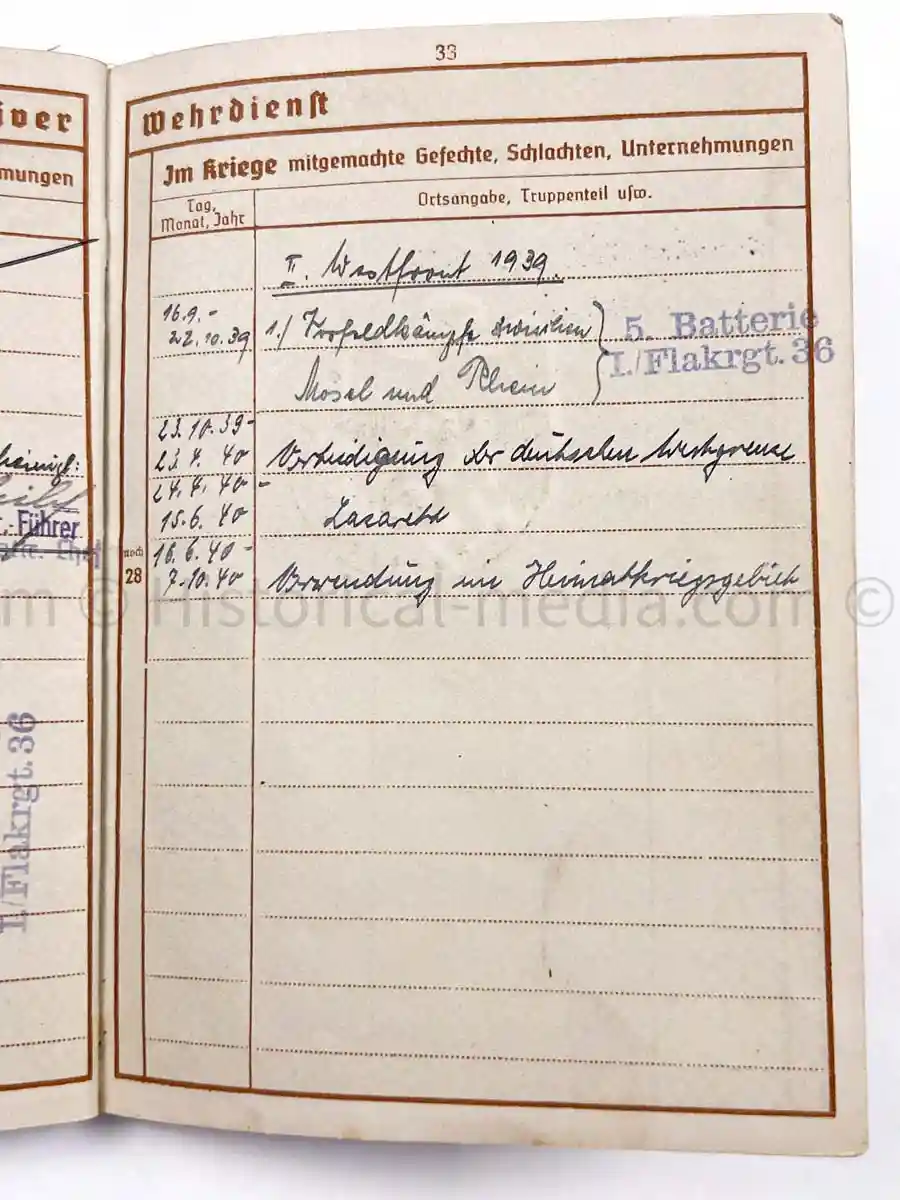 iver
mungen
Führer
I./Flakrgt. 36
33
Wehrdienst
Im Kriege mitgemachte Gefechte, Schlachten, Unternehmungen
Tag,
Monat, Jahr
Ortsangabe, Truppenteil usw.
II. Westfront 1939.
16.9.-
22.10.39 1./ Vorfeldkämpfe zwischen
Mosel und Rhein
5. Batterie
I./Flakrgt. 36
23.10.39-
23.4.40 Verteidigung der deutschen Westgrenze
24.4.40-
15.6.40 Lazarett
noch
28
16.6.40-
7.10.40 Verwendung im Heimatkriegsgebiet
© Historical-media.com ©